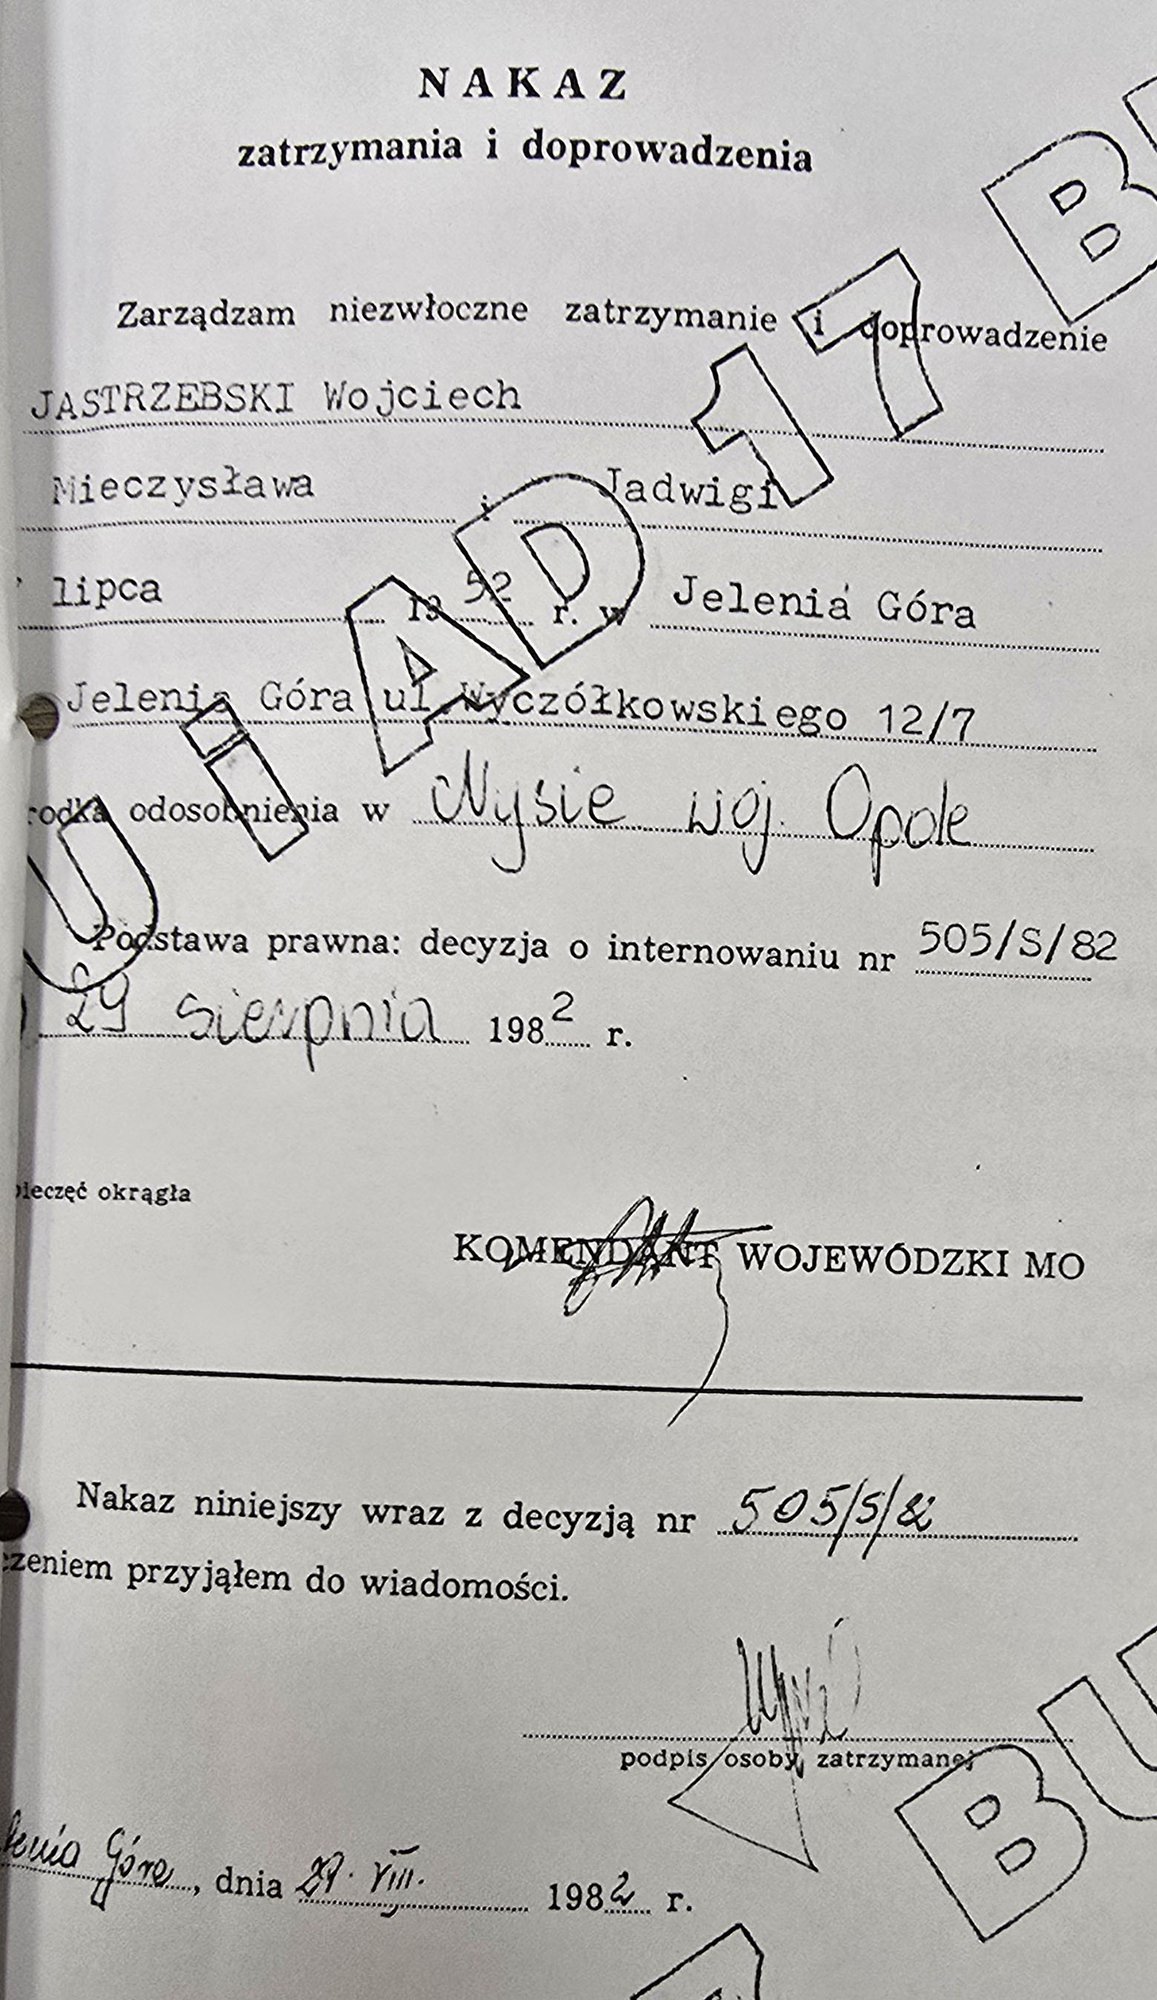 NAKAZ
zatrzymania i doprowadzenia
Zarządzam niezwłoczne zatrzymanie i doprowadzenie
JASTRZEBSKI Wojciech
Mieczysława i Jadwigi
lipca 1952 r. w Jelenia Góra
Jelenia Góra ul. Wyczółkowskiego 12/7
rodka odosobnienia w Nysie woj. Opole
Podstawa prawna: decyzja o internowaniu nr 505/S/82
29 sierpnia 1982 r.
pieczęć okrągła
KOMENDANT WOJEWÓDZKI MO
Nakaz niniejszy wraz z decyzją nr 505/S/82
czeniem przyjąłem do wiadomości.
podpis osoby zatrzymanej
lenia Góra, dnia 29. VIII. 1982 r.
BU i AD 17 BU
BU